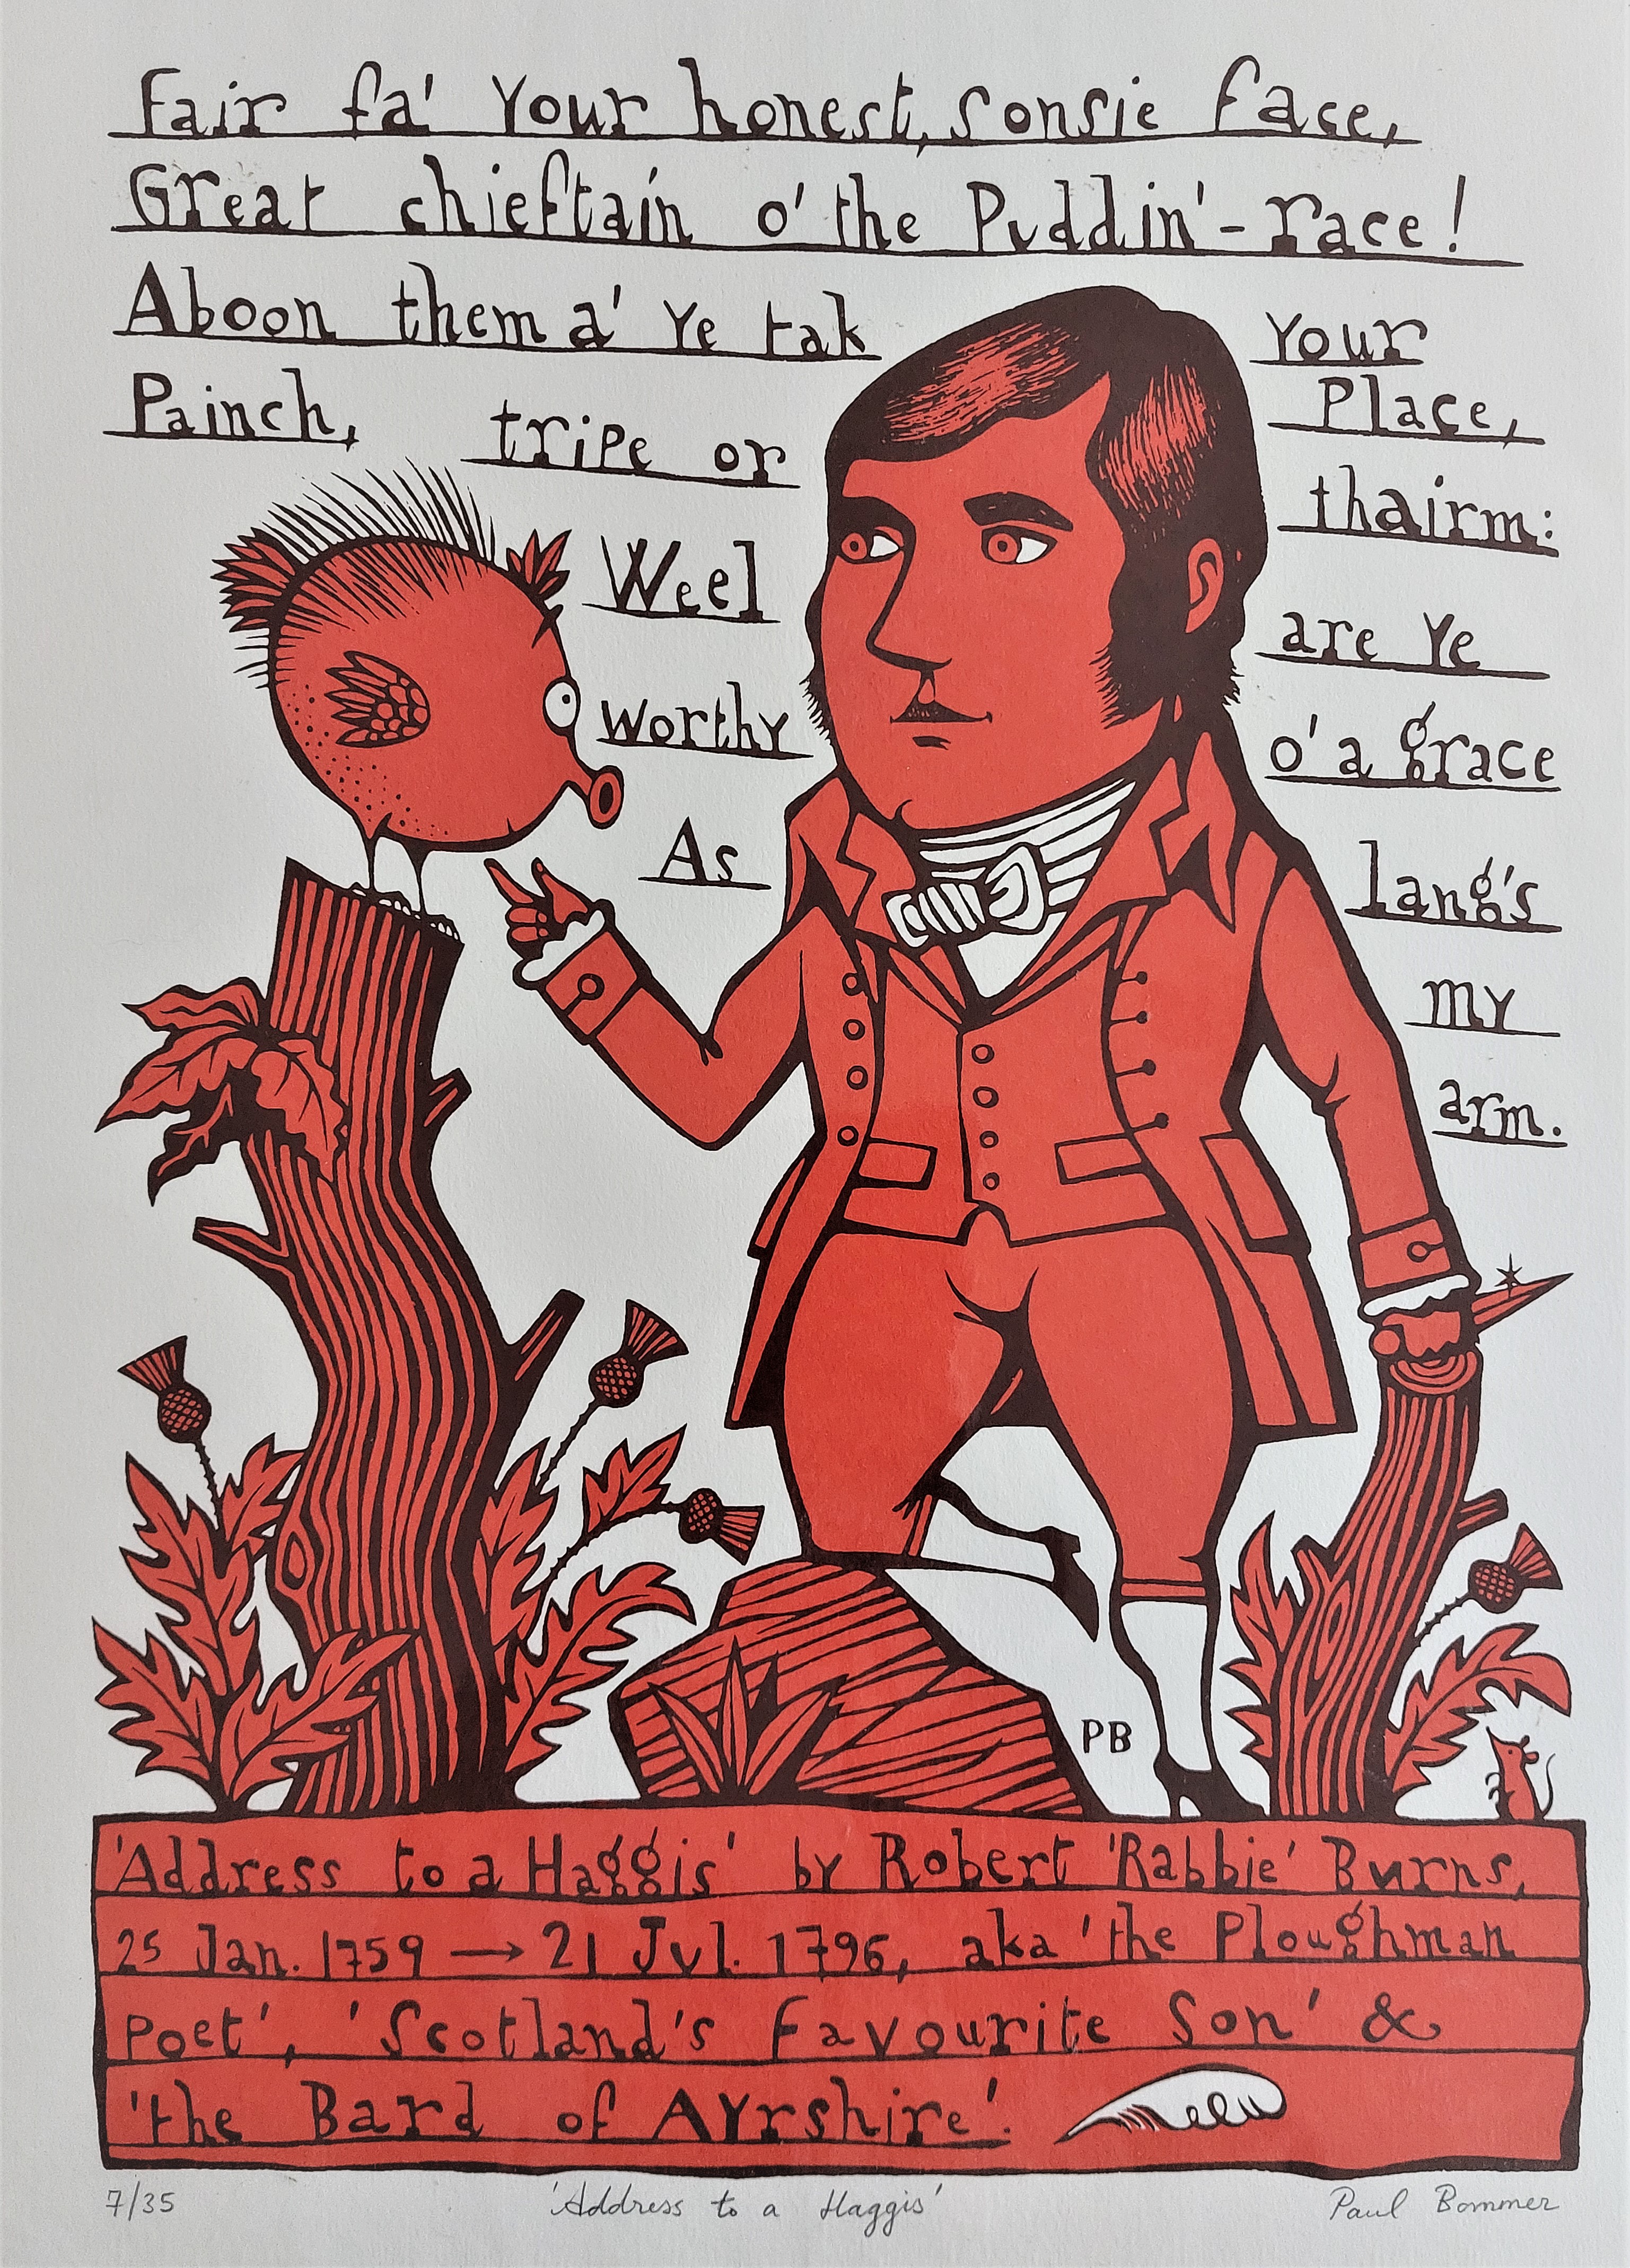 Fair fa' Your honest, sonsie face,
Great chieftain o' the Puddin'-race!
Aboon them a' Ye tak Your
Place,
Painch, tripe or thairm:
Weel are Ye
worthy o' a grace
As lang's
my
arm.
PB
'Address to a Haggis' by Robert 'Rabbie' Burns,
25 Jan. 1759 → 21 Jul. 1796, aka 'the Ploughman
Poet', 'Scotland's Favourite Son' &
'the Bard of Ayrshire'.
7/35 'Address to a Haggis' Paul Bommer